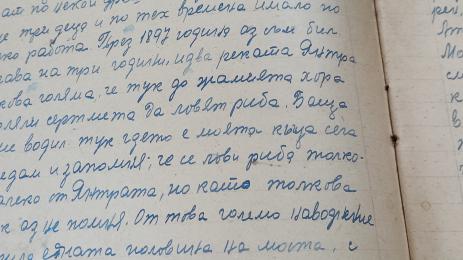 по некой
три деца и по тех времена имало по
ко работа. През 1897 година аз съм бил
на три години, идва реката Янтра
кова голяма, че тук до джамията хора
сертмета да ловят риба. Баща
ме водил тук гдето е моята къща сега
едам и запомня; че се лови риба толко-
алеко от Янтрата, но като толкова
к аз не помня. От това големо наводнение
едната половина на моста, с